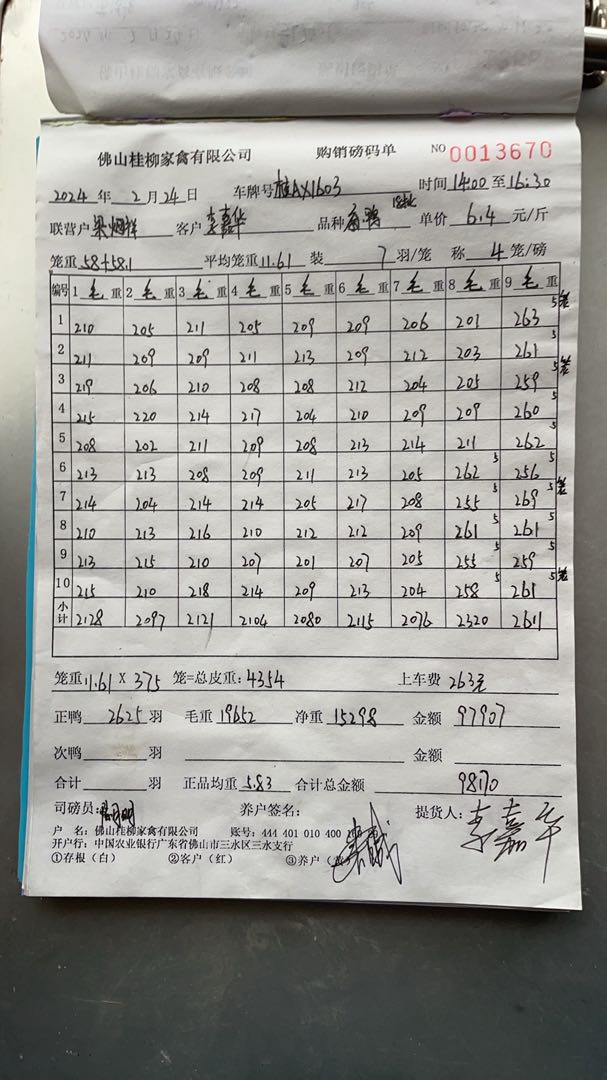 佛山桂柳家禽有限公司 购销磅码单 NO 0013670
2024年 2月24日 车牌号桂AX1603 时间14:00至16:30
联营户 客户李嘉华 品种 单价 6.4 元/斤
笼重58+58.1 平均笼重11.61 装 7 羽/笼 称 4 笼/磅
编号 1毛重 2毛重 3毛重 4毛重 5毛重 6毛重 7毛重 8毛重 9毛重
1 210 205 211 205 209 209 206 201 263 5笼
2 211 209 209 211 213 209 212 203 261 5
3 219 206 210 208 208 212 204 205 259 5笼
4 215 220 214 217 204 210 209 209 260 5
5 208 202 211 209 208 213 214 211 262 5
6 213 213 208 209 211 213 205 262 5 256 5
7 214 204 214 214 205 217 208 255 5 269 5笼
8 210 213 216 210 212 212 209 261 5 261 5
9 213 215 210 207 201 207 205 255 5 259 5
10 215 210 218 214 209 213 204 258 5 261 5笼
小计 2128 2097 2121 2104 2080 2115 2076 2320 2611
笼重11.61 X 375 笼=总皮重:4354 上车费 263元
正鸭 2625 羽 毛重 19652 净重 15298 金额 97907
次鸭 羽 金额
合计 羽 正品均重 5.83 合计总金额 98170
司磅员: 养户签名: 提货人:李嘉华
户 名:佛山桂柳家禽有限公司 账号:444 401 010 400
开户行:中国农业银行广东省佛山市三水区三水支行
①存根(白) ②客户(红) ③养户